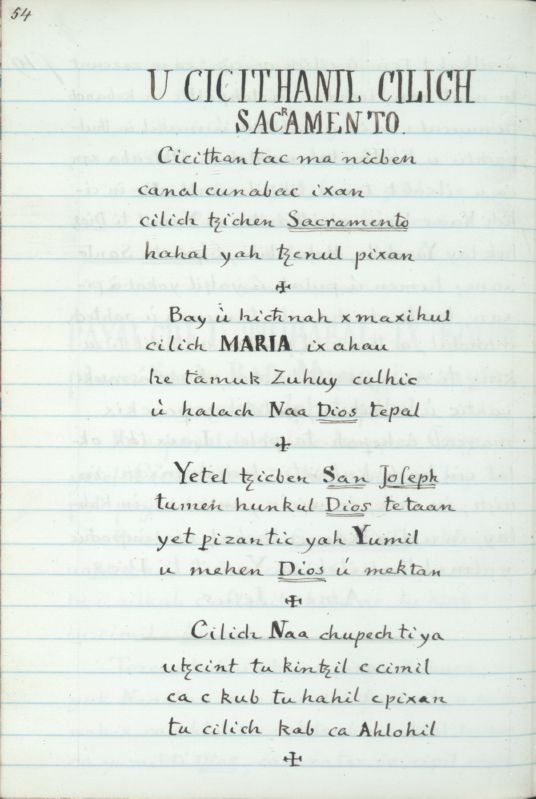 54
U CICITHANIL CILICH
SACRAMENTO.
Cicithantac ma nicben
canal cunabac ixan
cilich tzichen Sacramento
hahal yah tzenul pixan
✠
Bay ù hichnah xmaxihul
cilich MARIA ix ahau
he tamuk Zuhuy culhic
ù halach Naa Dios tepal
✠
Yetel tzicben San Joseph
tumen hunkul Dios tetaan
yet pizantic yah Yumil
u mehen Dios ú mektan
✠
Cilich Naa chupech ti ya
utzcint tu kintzil c cimil
ca c kub tu hahil c pixan
tu cilich kab ca Ahlohil
✠